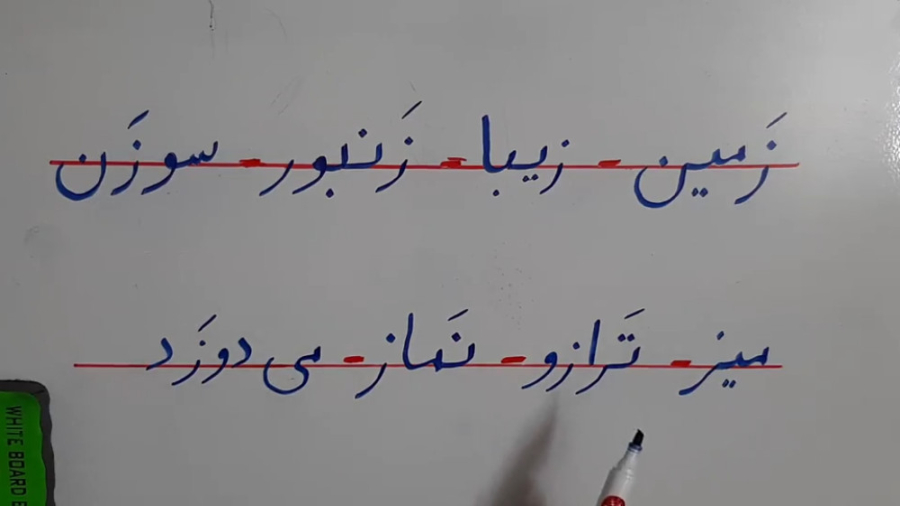 زَمین - زیبا - زَنبور - سوزَن
میز - تَرازو - نَماز - می دوزَد
WHITE BOARD E